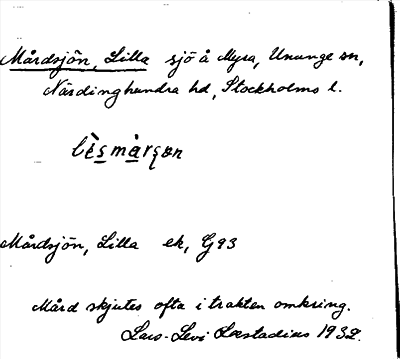 Mårdsjön, Lilla sjö å Myra, Ununge sn,
Närdinghundra hd, Stockholms l.
Mårdsjön, Lilla ek, G 93
Mård skjutes ofta i trakten omkring.
Lars-Levi Læstadius 1932.